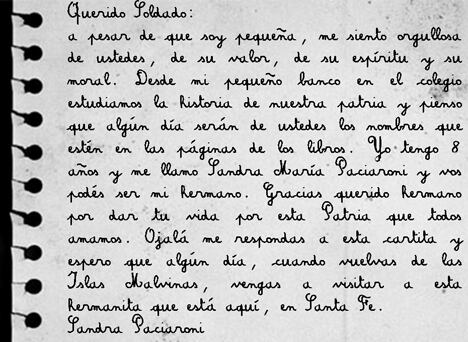 Querido Soldado:
a pesar de que soy pequeña, me siento orgullosa
de ustedes, de su valor, de su espíritu y su
moral. Desde mi pequeño banco en el colegio
estudiamos la historia de nuestra patria y pienso
que algún día serán de ustedes los nombres que
estén en las páginas de los libros. Yo tengo 8
años y me llamo Sandra María Paciaroni y vos
podés ser mi hermano. Gracias querido hermano
por dar tu vida por esta Patria que todos
amamos. Ojalá me respondas a esta cartita y
espero que algún día, cuando vuelvas de las
Islas Malvinas, vengas a visitar a esta
hermanita que está aquí, en Santa Fe.
Sandra Paciaroni